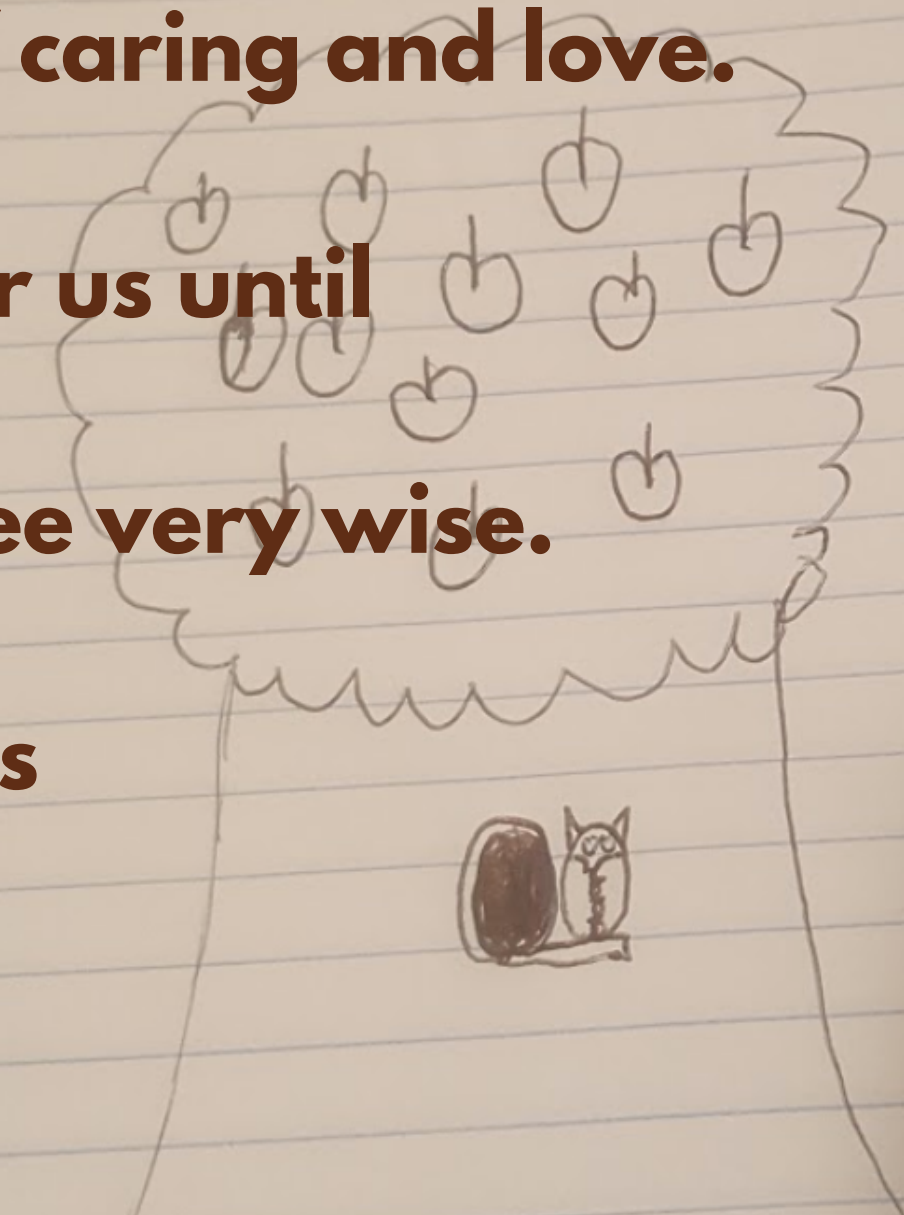 caring and love.
r us until
ee very wise.
s